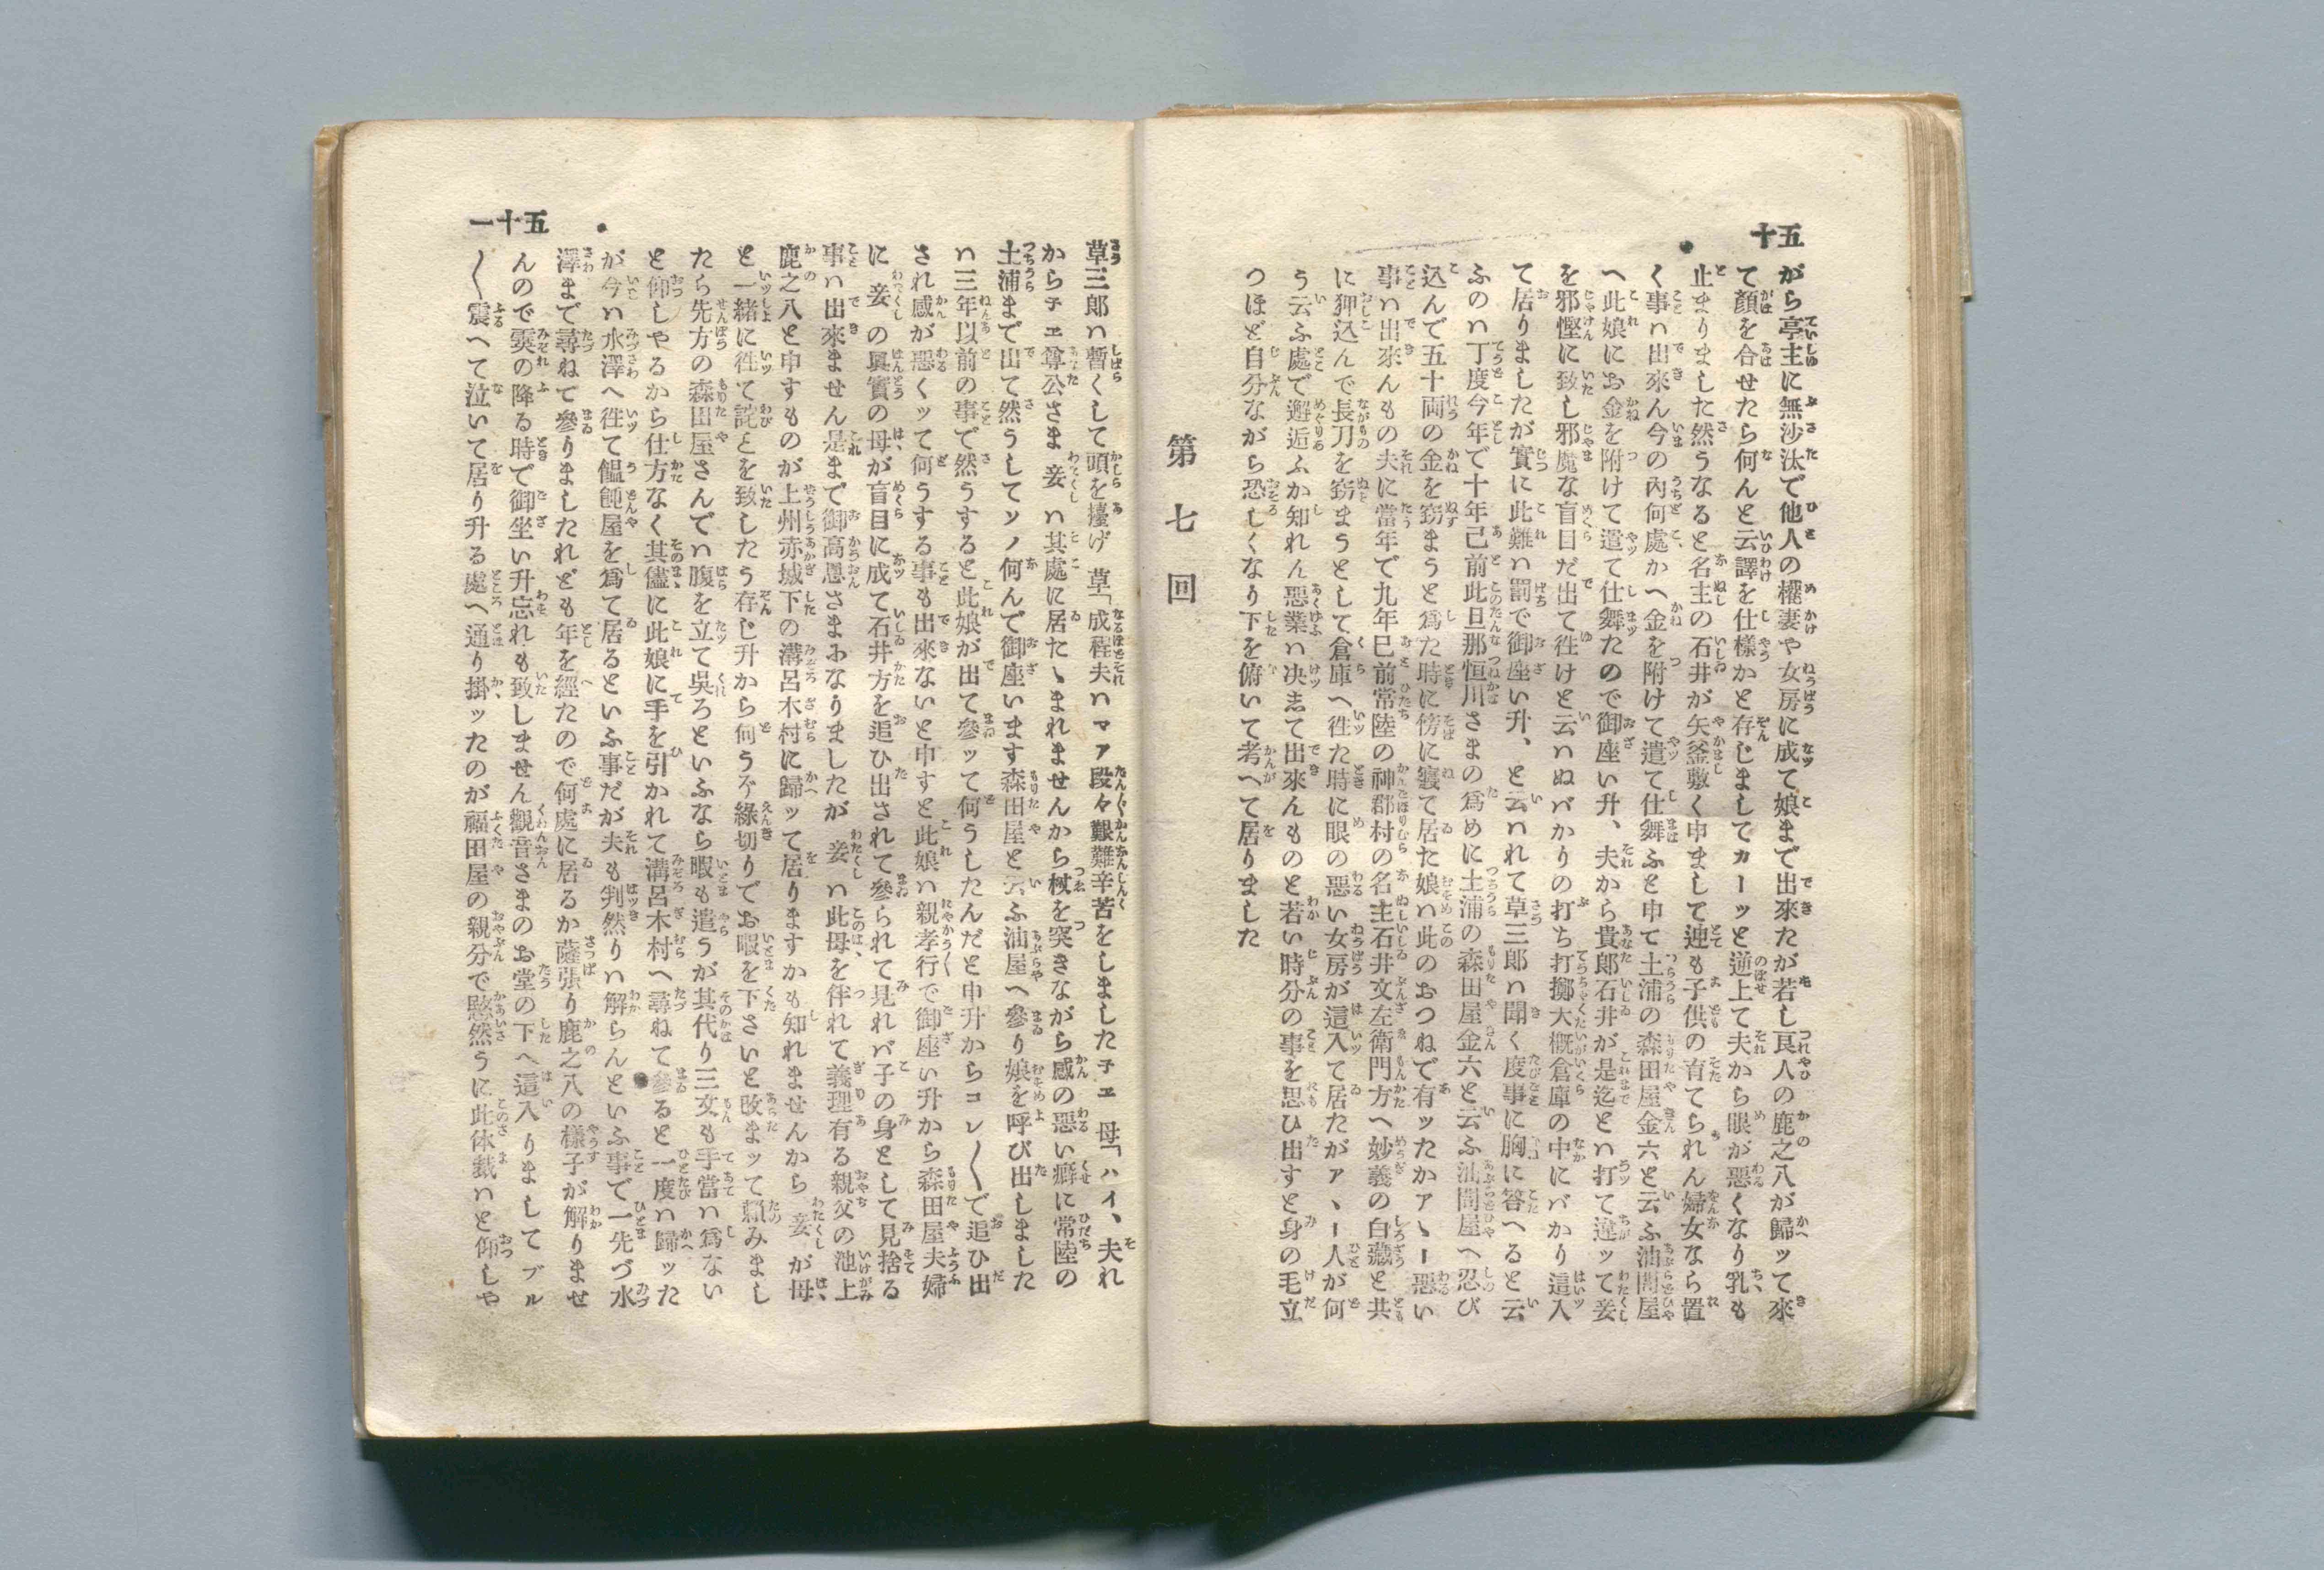 五十
がら亭主に無沙汰で他人の權妻や女房に成て娘まで出來たが若し良人の鹿之八が歸ッて來
て顏を合せたら何んと云譯を仕樣かと存じましてカーッと逆上て夫から眼が悪くなり乳も
止まりました然うなると名主の石井が矢釜敷く申まして迚も子供の育てられん婦女なら置
く事ハ出來ん今の內何處かへ金を附けて遣て仕舞ふと申て土浦の森田屋金六と云ふ油問屋
へ此娘にお金を附けて遣て仕舞たので御座い升、夫から貴郎石井が是迄とハ打て違ッて妾
を邪慳に致し邪魔な盲目だ出て徃けと云ハぬバかりの打ち打擲大概倉庫の中にバかり這入
て居りましたが實に此難ハ罰で御座い升、と云ハれて草三郎ハ聞く度事に胸に答へると云
ふのハ丁度今年で十年己前此旦那恒川さまの爲めに土浦の森田屋金六と云ふ油問屋へ忍び
込んで五十両の金を窃まうと爲た時に傍に寢て居た娘ハ此のおつねで有ッたかアヽー悪い
事ハ出來んもの夫に當年で九年已前常陸の神郡村の名主石井文左衛門方へ妙義の白藏と共
に狎込んで長刀を窃まうとして倉庫へ徃た時に眼の悪い女房が這入て居たがアヽー人が何
う云ふ處で邂逅ふか知れん悪業ハ决志て出來んものと若い時分の事を思ひ出すと身の毛立
つほど自分ながら恐しくなり下を俯いて考へて居りました
第七回
五十一
草三郎ハ暫くして頭を擡げ　草「成程夫ハマア段々艱難辛苦をしましたチヱ　母「ハイ、夫れ
からチヱ尊公さま妾ハ其處に居たゝまれませんから杖を突きながら感の悪い癖に常陸の
土浦まで出て然うしてソノ何んで御座います森田屋と云ふ油屋へ參り娘を呼び出しました
ハ三年以前の事で然うすると此娘が出て參ッて何うしたんだと申升からコレ〱で追ひ出
され感が悪くッて何うする事も出來ないと申すと此娘ハ親孝行で御座い升から森田屋夫婦
に妾の眞實の母が盲目に成て石井方を追ひ出されて參られて見れバ子の身として見捨る
事ハ出來ません是まで御高恩さまおなりましたが妾ハ此母を伴れて義理有る親父の池上
鹿之八と申すものが上州赤城下の溝呂木村に歸ッて居りますかも知れませんから妾が母
と一緒に徃て詫ことを致したう存じ升から何うぞ綠切りでお暇を下さいと改まッて頼みまし
たら先方の森田屋さんでハ腹を立て吳ろといふなら暇も遣うが其代り三文も手當ハ爲ない
と仰しやるから仕方なく其儘に此娘に手を引かれて溝呂木村へ尋ねて參ると一度ハ歸ッた
が今ハ水澤へ徃て饂飩屋を爲て居るといふ事だが夫も判然りハ解らんといふ事で一先づ水
澤まで尋ねて參りましたれども年を經たので何處に居るか薩張り鹿之八の樣子が解りませ
んので霙の降る時で御坐い升忘れも致しません觀音さまのお堂の下へ這入りましてブル
〱震へて泣いて居り升る處へ通り掛ッたのが福田屋の親分で愍然うに此体裁ハと仰しや